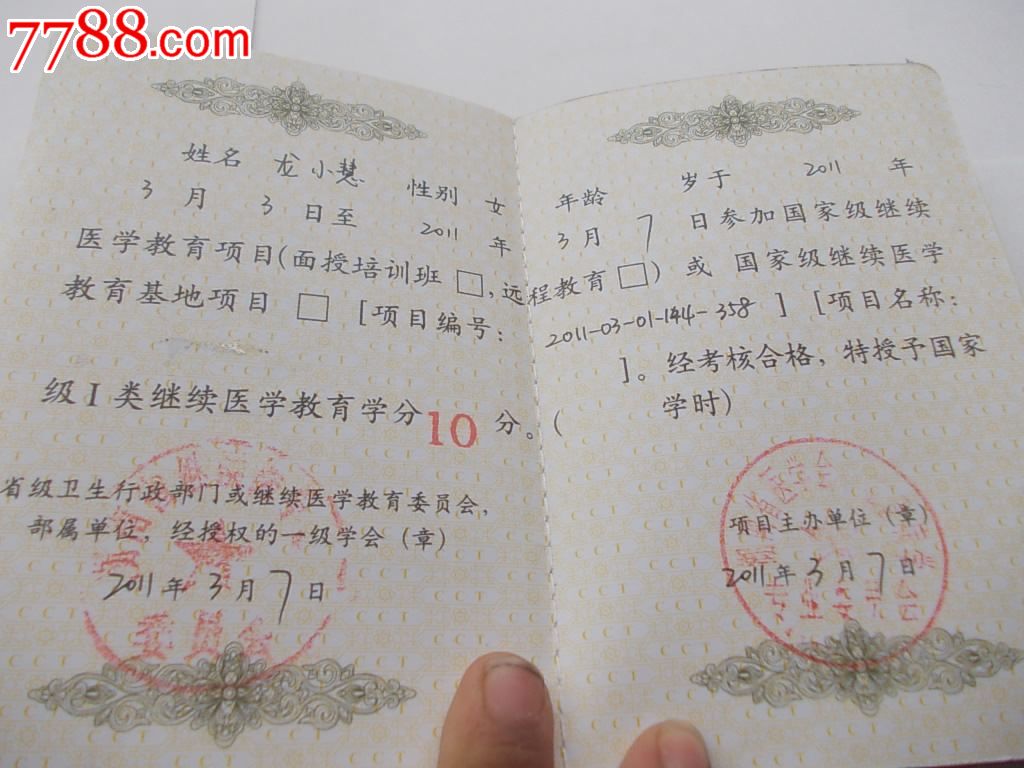 7788.com
姓名 龙小慧 性别 女 年龄 岁于 2011 年
3 月 3 日至 2011 年 3 月 7 日参加国家级继续
医学教育项目(面授培训班 □, 远程教育 □) 或 国家级继续医学
教育基地项目 □ [项目编号: 2011-03-01-144-358 ] [项目名称:
]。经考核合格, 特授予国家
级 I 类继续医学教育学分 10 分。( 学时)
省级卫生行政部门或继续医学教育委员会,
部属单位, 经授权的一级学会 (章)
项目主办单位 (章)
2011 年 3 月 7 日
2011 年 3 月 7 日
委员会